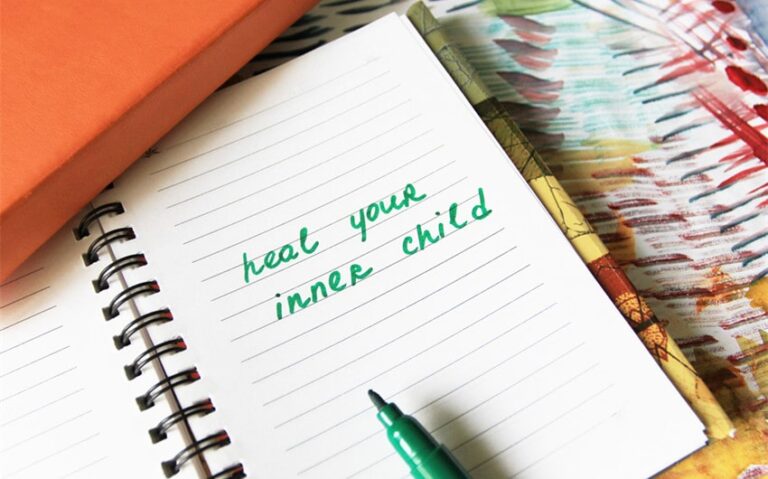 heal your
inner child